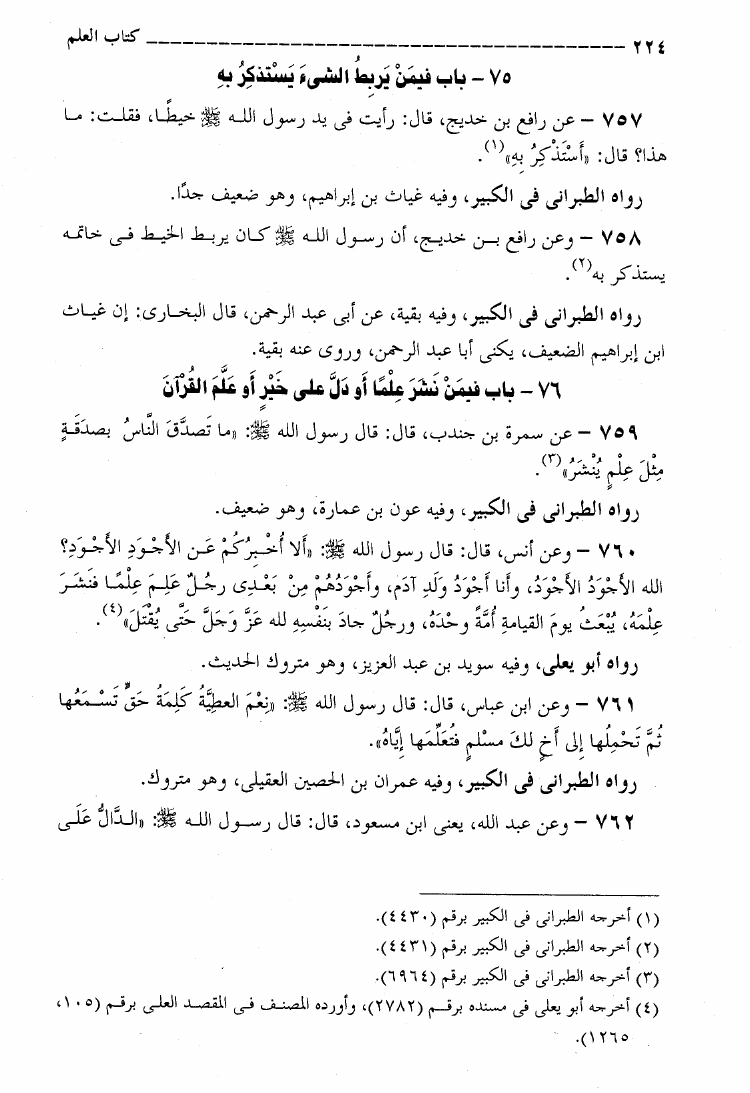 ٢٢٤ ــــــــــــــــــــــــــــــــــــــــــــــــــــــــــــــــــــــــــ كتاب العلم
٧٥ – باب فيمَنْ يَربِطُ الشىءَ يَسْتذكِرُ بِهِ
٧٥٧ – عن رافع بن خديج، قال: رأيت فى يد رسول اللـه ﷺ خيطًا، فقلـت: مـا
هذا؟ قال: «أَسْتَذْكِرُ بِهِ»(١).
رواه الطبرانى فى الكبير، وفيه غياث بن إبراهيم، وهو ضعيف جدًا.
٧٥٨ – وعن رافع بـن خديـج، أن رسـول اللـه ﷺ كـان يربـط الخيـط فـى خاتمـه
يستذكر به(٢).
رواه الطبرانى فى الكبير، وفيه بقية، عن أبى عبد الرحمن، قال البخـارى: إن غيـاث
ابن إبراهيم الضعيف، يكنى أبا عبد الرحمن، وروى عنه بقية.
٧٦ – باب فيمَنْ نَشَرَ عِلْمًا أو دَلَّ على خَيْرٍ أو عَلَّمَ القُرْآنَ
٧٥٩ – عن سمرة بن جندب، قال: قال رسول الله ﷺ: «ما تَصدَّقَ النَّاسُ بصدَقَـةٍ
مِثْلَ عِلْمٍ يُنْشَرُ»(٣).
رواه الطبرانى فى الكبير، وفيه عون بن عمارة، وهو ضعيف.
٧٦٠ – وعن أنس، قال: قال رسول الله ﷺ: «ألا أُخْـبِرُكُمْ عَـنِ الأَجْـوَدِ الأجْـوَدِ؟
الله الأجْوَدُ الأجْوَدُ، وأنا أَجْوَدُ ولَدِ آدَم، وأجْوَدُهُمْ مِنْ بَعْـدِى رجُلٌ عَلِـمَ عِلْمًـا فنَشَـرَ
عِلْمَهُ، يُبْعَثُ يومَ القيامةِ أُمَّةً وحْدَهُ، ورجُلٌ جادَ بنَفْسِهِ لله عَزَّ وَجَلَّ حَتَّى يُقْتَلَ»(٤).
رواه أبو يعلى، وفيه سويد بن عبد العزيز، وهو متروك الحديث.
٧٦١ – وعن ابن عباس، قال: قال رسول الله ﷺ: «نِعْمَ العطِيَّةُ كَلِمَةُ حَقٍّ تَسْـمَعُها
ثُمَّ تَحْمِلُها إلى أخٍ لكَ مسْلمٍ فتُعَلِّمَها إيَّاهُ».
رواه الطبرانى فى الكبير، وفيه عمران بن الحصين العقيلى، وهو متروك.
٧٦٢ – وعن عبد الله، يعنى ابن مسعود، قال: قال رسـول اللـه ﷺ: «الـدَّالُّ عَلَـى
(١) أخرجه الطبرانى فى الكبير برقم (٤٤٣٠).
(٢) أخرجه الطبرانى فى الكبير برقم (٤٤٣١).
(٣) أخرجه الطبرانى فى الكبير برقم (٦٩٦٤).
(٤) أخرجه أبو يعلى فى مسنده برقـم (٢٧٨٢)، وأورده المصنـف فـى المقصد العلـى برقـم (١٠٥،
١٢٦٥).